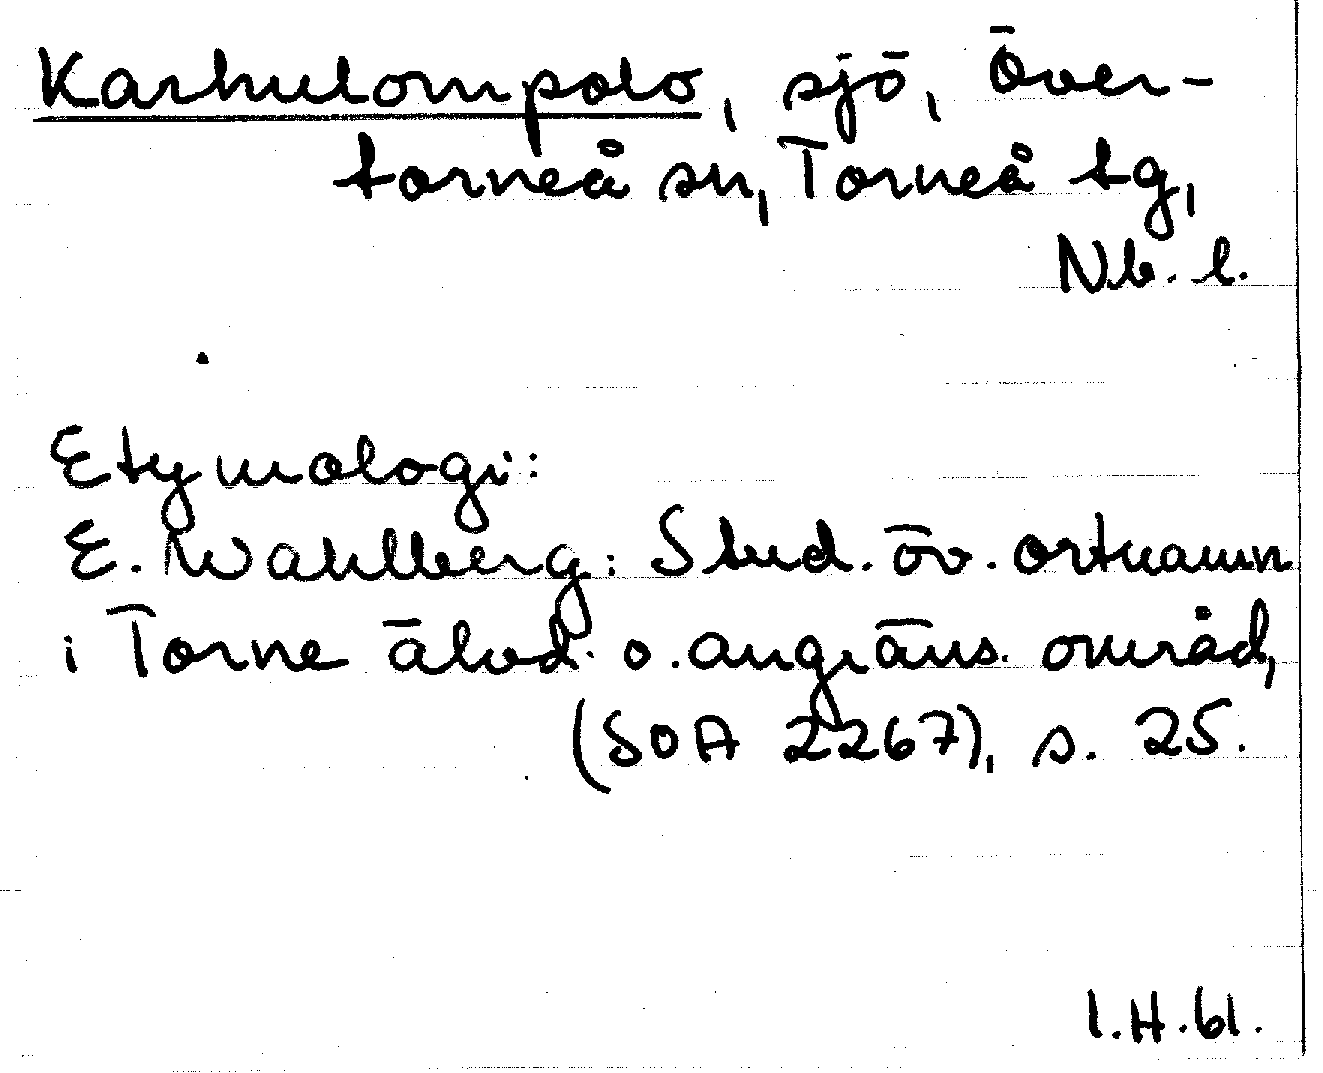 Karhulompolo, sjö, Över-
torneå sn, Torneå tg,
Nb. l.
Etymologi:
E. Wahlberg: Stud. öv. ortnamn
i Torne älvd. o. angräns. områd,
(SOA 2267), s. 25.
I.H.61.